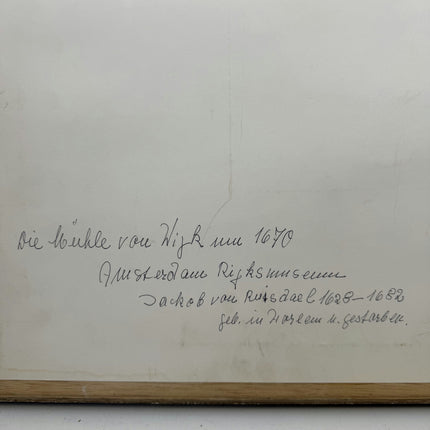 Die Mühle von Wijk um 1670
Amsterdam Rijksmuseum
Jackob von Ruisdael 1628–1682
geb. in Harlem u. gestorben.